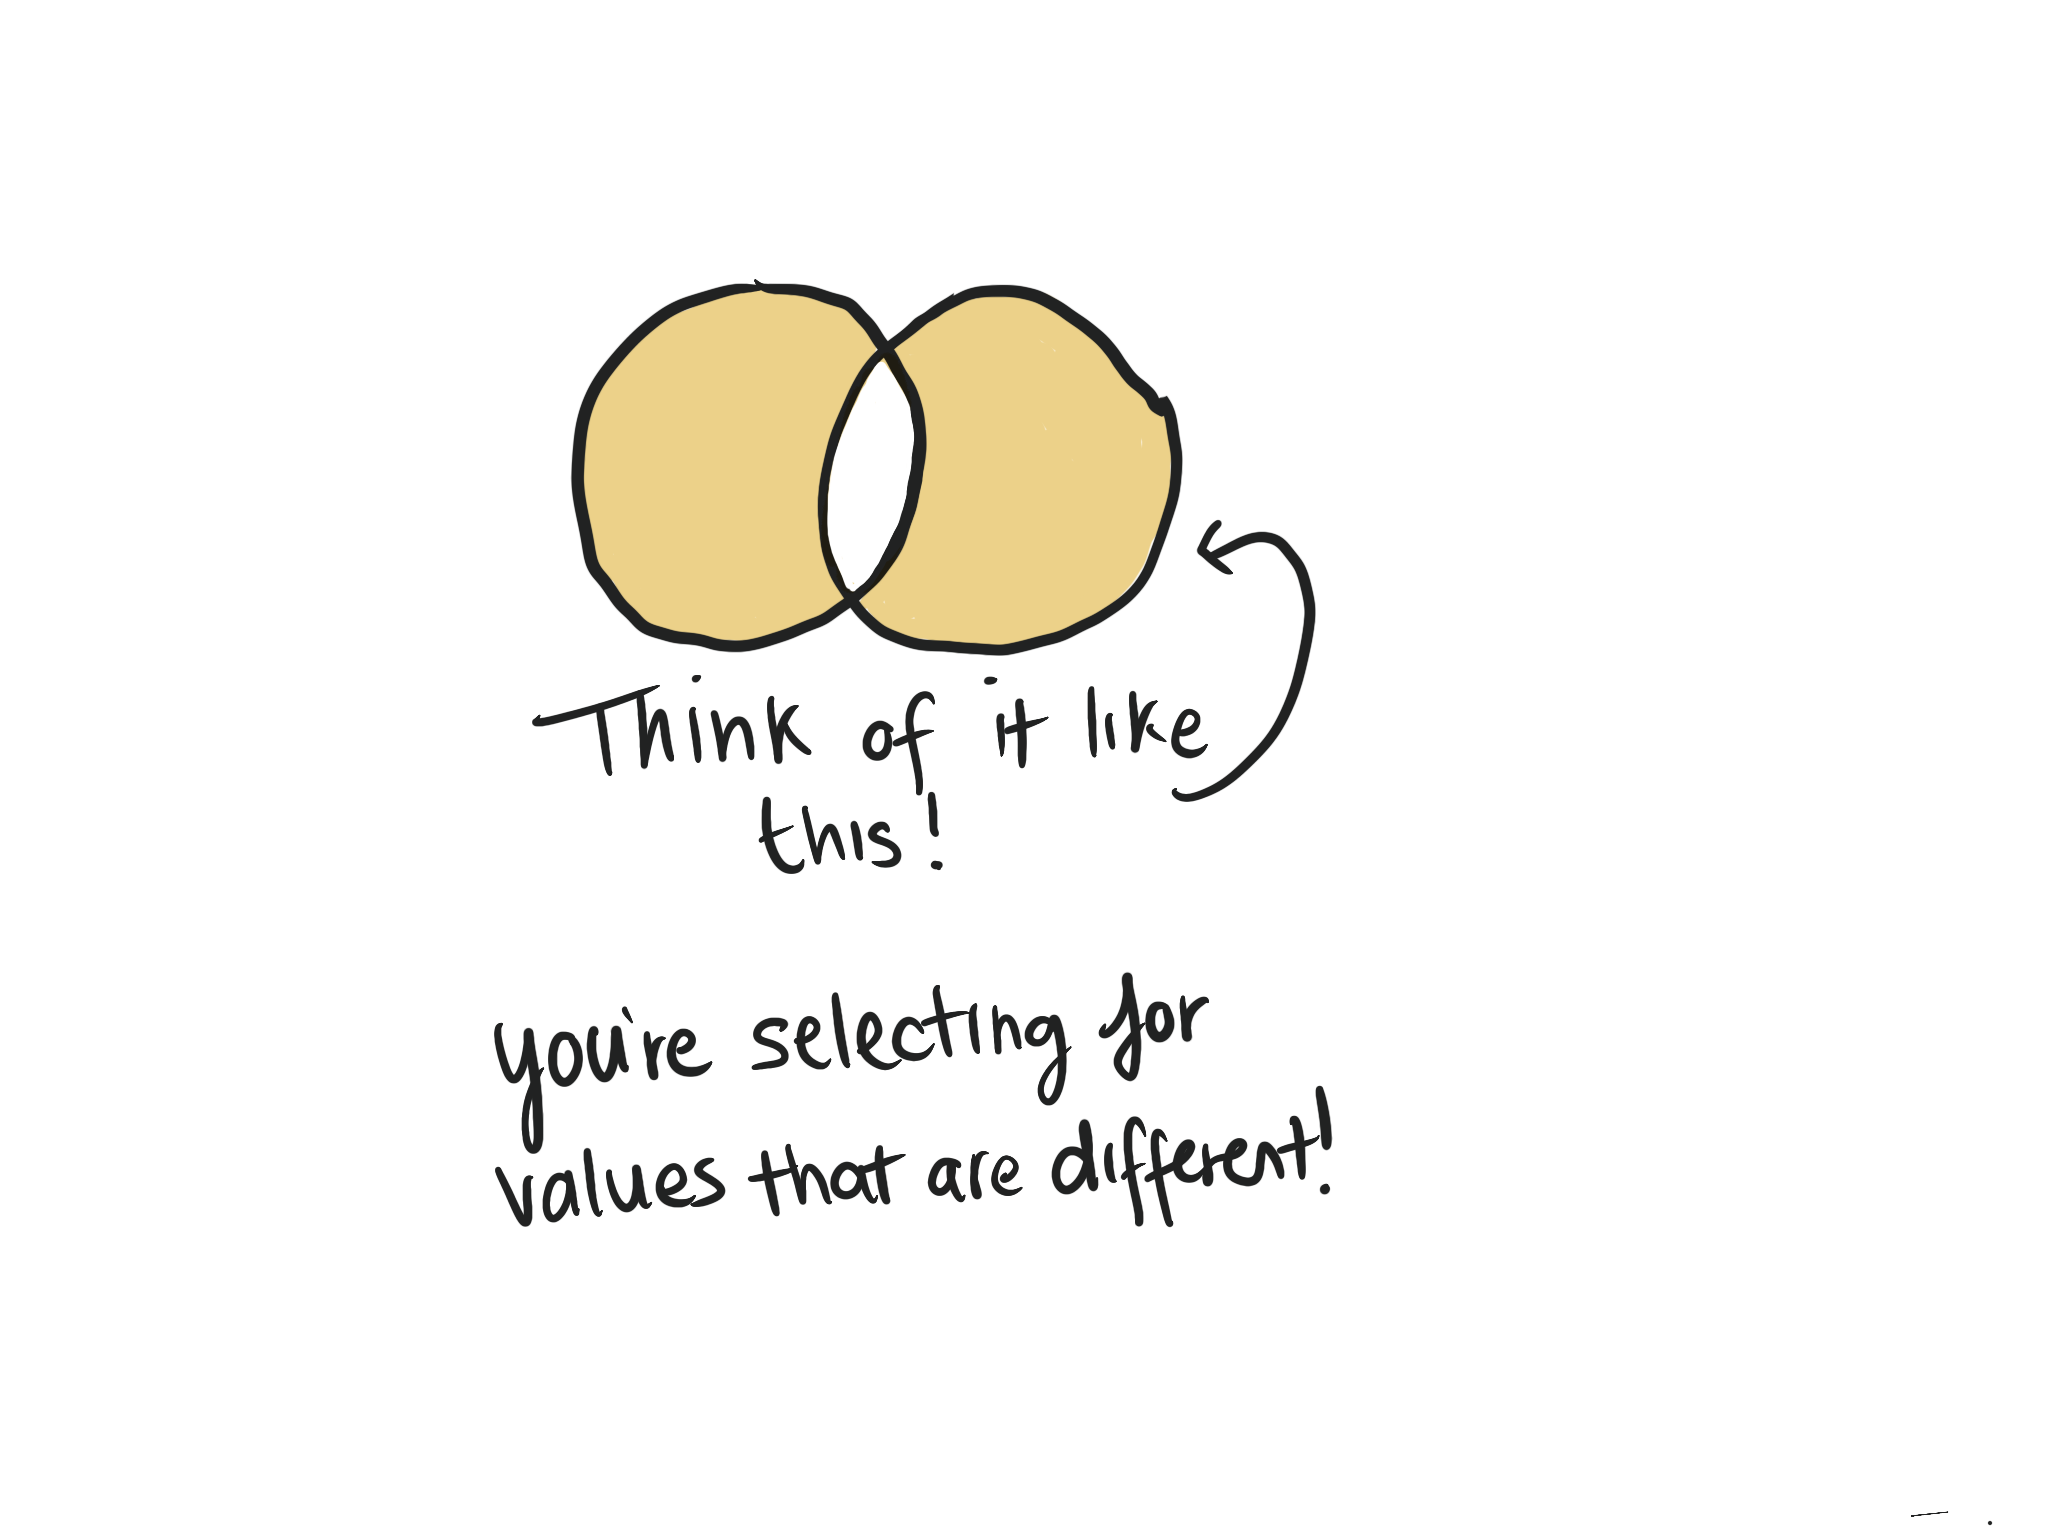 Think of it like
this!
you're selecting for
values that are different!